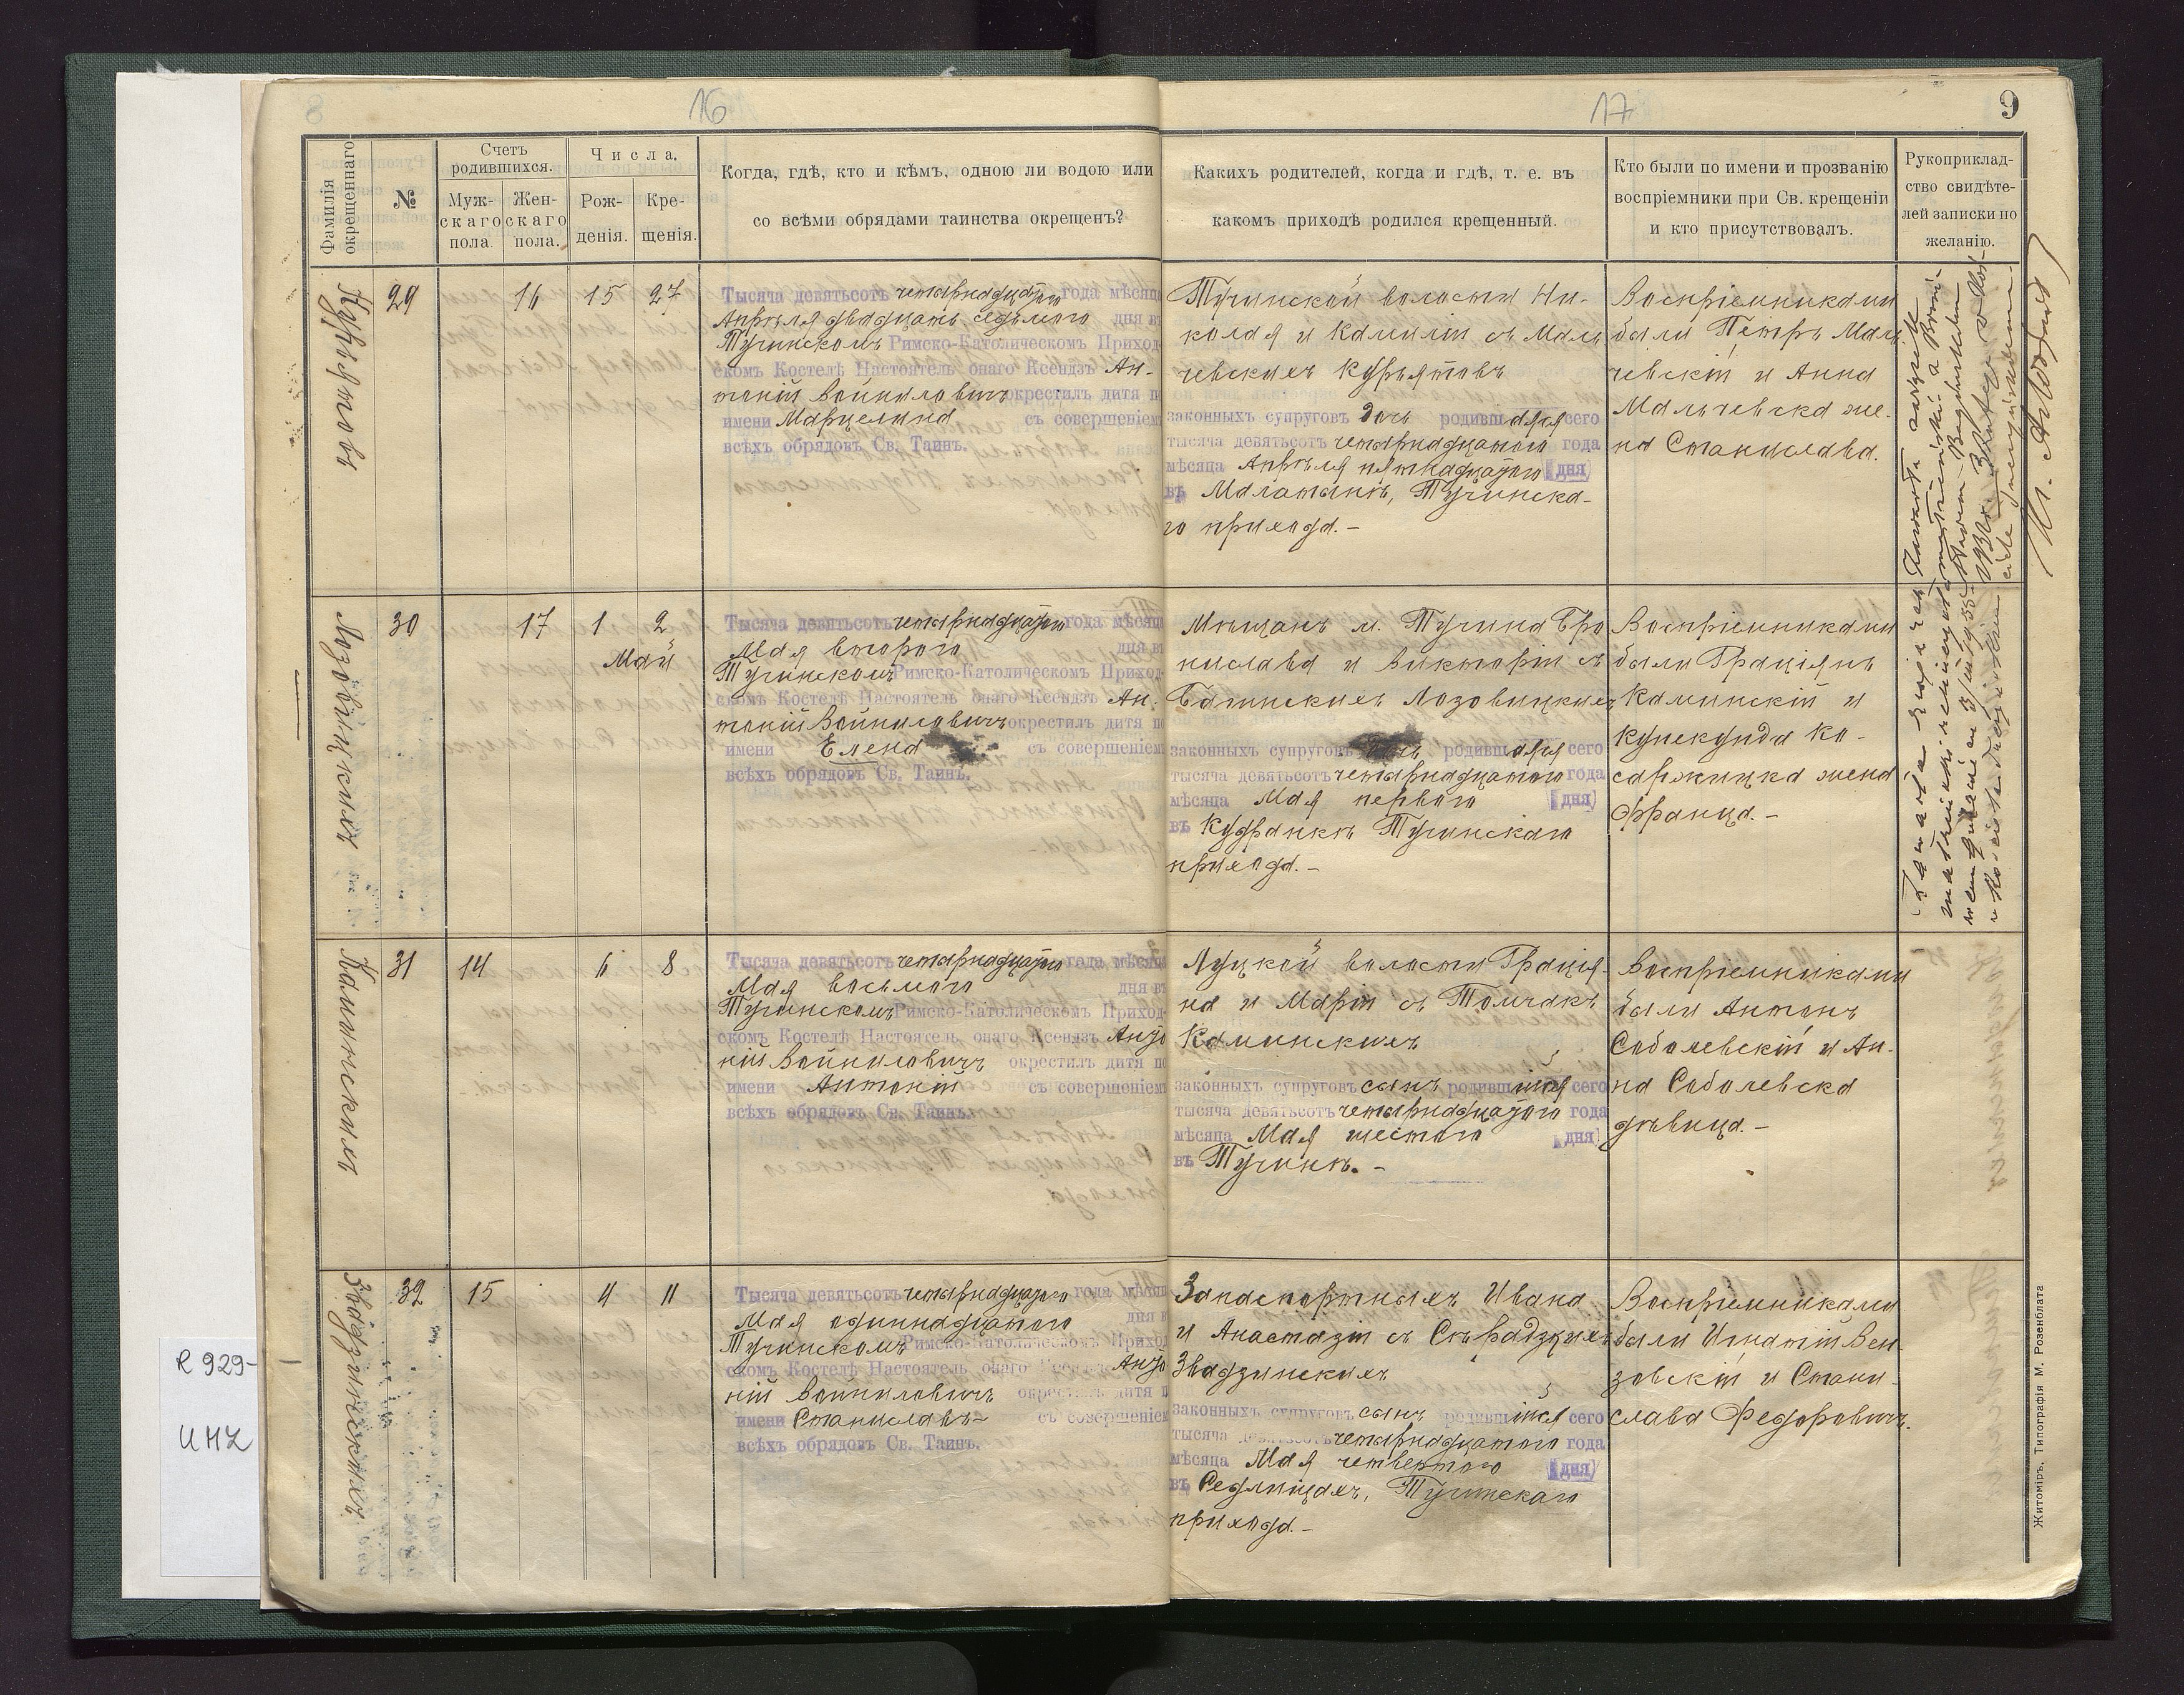 16
17
9
Фамилія окрещеннаго
№
Счетъ родившихся.
Муж-
скаго
пола.
Жен-
скаго
пола.
Числа.
Рож-
денія.
Кре-
щенія.
Когда, гдѣ, кто и кѣмъ, одною ли водою или
со всѣми обрядами таинства окрещенъ?
Каких­ъ родителей, когда и гдѣ, т. е. въ
какомъ приходѣ родился крещенный.
Кто были по имени и прозванію
воспріемники при Св. крещеніи
и кто присутствовалъ.
Рукоприклад-
ство свидѣте-
лей записки по
желанію.
29
16
15
27
Тысяча девятьсотъ четырнадцатого года мѣсяца
Апрѣля двадцать седьмого дня въ
Тучинскомъ Римско-Католическомъ Приход-
скомъ Костелѣ Настоятель онаго Ксендзъ Ан-
тоній Войниловичъ окрестилъ дитя по
имени Марцелина съ совершеніемъ
всѣхъ обрядовъ Св. Таинъ.
Тучинской волости Ни-
колая и Камиліи съ Маль
чевскихъ Курьятовъ
законныхъ супруговъ дочь родившаяся сего
тысяча девятьсотъ четырнадцатого года
мѣсяца Апрѣля пятнадцатого дня
въ Малатынѣ, Тучинска-
го прихода. –
Воспріемниками
были Петръ Маль
чевскій и Анна
Мальчевска же-
на Станислава.
30
Лозовицкихъ
17
1
2
Май
Тысяча девятьсотъ четырнадцатого года мѣсяца
Мая второго дня въ
Тучинскомъ Римско-Католическомъ Приход-
скомъ Костелѣ Настоятель онаго Ксендзъ Ан-
тоній Войниловичъ окрестилъ дитя по
имени Елена съ совершеніемъ
всѣхъ обрядовъ Св. Таинъ.
Мѣщанъ м. Тучина Бро
нислава и Викторіи съ
Багинскихъ Лозовицкихъ
законныхъ супруговъ дочь родившаяся сего
тысяча девятьсотъ четырнадцатого года
мѣсяца Мая перваго дня
въ Кудранкѣ Тучинскаго
прихода. –
Воспріемниками
были Граціянъ
Каминскій и
Кунекунда Ко-
саржицка жена
Франца. –
31
Каминскихъ
14
6
8
Тысяча девятьсотъ четырнадцатого года мѣсяца
Мая восьмого дня въ
Тучинскомъ Римско-Католическомъ Приход-
скомъ Костелѣ Настоятель онаго Ксендзъ Анто
ній Войниловичъ окрестилъ дитя по
имени Антоній съ совершеніемъ
всѣхъ обрядовъ Св. Таинъ.
Луцкой волости Грація-
на и Маріи съ Томчакъ
Каминскихъ
законныхъ супруговъ сынъ родившійся сего
тысяча девятьсотъ четырнадцатого года
мѣсяца Мая шестого дня
въ Тучинѣ. –
Воспріемниками
были Антонъ
Соболевскій и Ан-
на Соболевска
дѣвица. –
32
Звадзинскихъ
15
4
11
Тысяча девятьсотъ четырнадцатого года мѣсяца
Мая одиннадцатого дня въ
Тучинскомъ Римско-Католическомъ Приход
скомъ Костелѣ Настоятель онаго Ксендзъ Анто
ній Войниловичъ окрестилъ дитя по
имени Станиславъ – съ совершеніемъ
всѣхъ обрядовъ Св. Таинъ.
Запаспортныхъ Ивана
и Анастазіи съ Сѣрадзкихъ
Звадзинскихъ
законныхъ супруговъ сынъ родившійся сего
тысяча девятьсотъ четырнадцатого года
мѣсяца Мая четвертого дня
въ Седлищахъ, Тучинскаго
прихода. –
Воспріемниками
были Игнатій Вен-
зовскій и Стани-
слава Федоровичъ.
Житоміръ, Типографія М. Розенблата
R 929-
UMZ